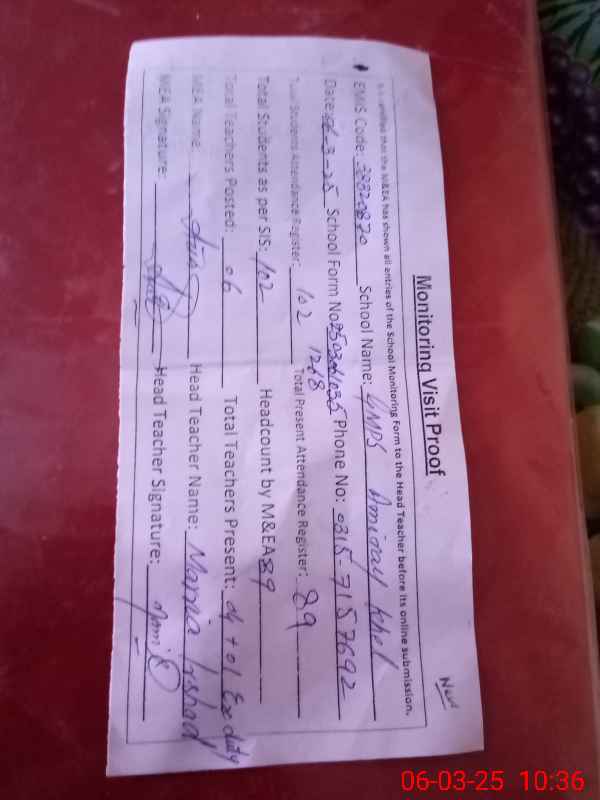 New
Monitoring Visit Proof
It is certified that the M&EA has shown all entries of the School Monitoring Form to the Head Teacher before its online submission.
EMIS Code: 38820820 School Name: GMPS Amiray khel
Date: 06-3-25 School Form No: Phone No: 0315-7157692
1268
Total Students Attendance Register: 102 Total Present Attendance Register: 89
Total Students as per SIS: 102 Headcount by M&EA: 89
Total Teachers Posted: 06 Total Teachers Present: 04 + 01 Ex duty
MEA Name: Head Teacher Name: Maria Irshad
MEA Signature: Head Teacher Signature:
06-03-25 10:36